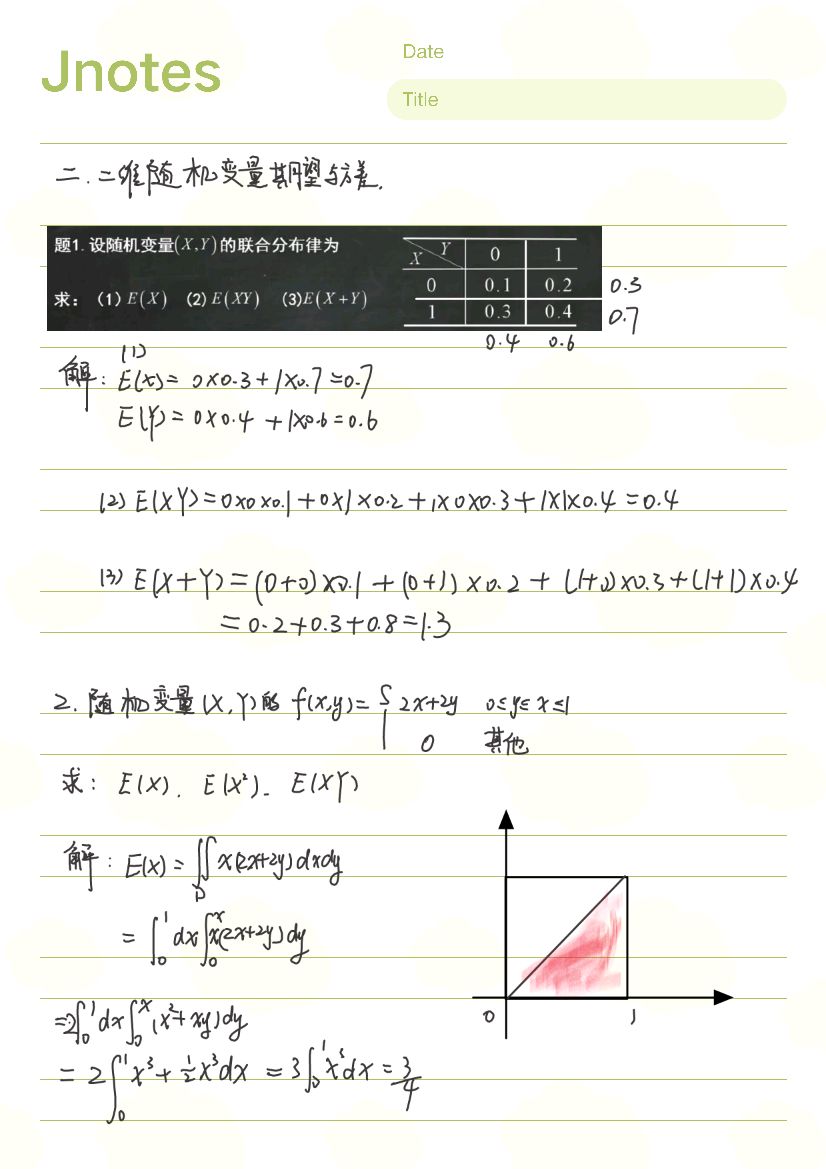 Jnotes
Date
Title
二. 二维随机变量期望与方差.
题1. 设随机变量(X,Y)的联合分布律为
X Y 0 1
0 0.1 0.2 0.3
求: (1) E(X) (2) E(XY) (3)E(X+Y)
1 0.3 0.4 0.7
0.4 0.6
(1)
解: E(x)= 0×0.3+1×0.7=0.7
E(Y)= 0×0.4 +1×0.6=0.6
(2) E(XY)=0×0×0.1+0×1×0.2+1×0×0.3+1×1×0.4=0.4
(3) E(X+Y)=(0+0)×0.1+(0+1)×0.2+(1+0)×0.3+(1+1)×0.4
=0.2+0.3+0.8=1.3
2. 随机变量(X,Y)的 f(x,y)={ 2x+2y 0≤y≤x≤1
0 其他
求: E(X). E(X²). E(XY)
解: E(x)=∬_D x(2x+2y)dxdy
=∫₀¹dx∫₀ˣx(2x+2y)dy
=2∫₀¹dx∫₀ˣ(x²+xy)dy
=2∫₀¹x³+½x³dx =3∫₀¹x³dx=3/4
0 1